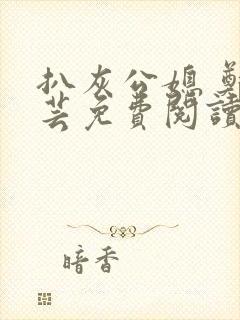 扒灰公媳
芸免费閱讀
暗香